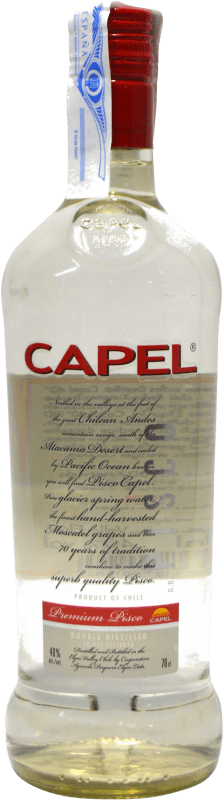 ESPAÑA
CAPEL
CAPEL®
Nestled in the valleys at the feet of
the great Chilean Andes
mountain range, south of the
Atacama Desert and cooled
by Pacific Ocean
you will find Pisco Capel.
Pure glacier spring water,
the finest hand-harvested
Moscatel grapes and over
70 years of tradition
combine to make this
superb quality Pisco.
PRODUCT OF CHILE
Premium Pisco
CAPEL
DOUBLE DISTILLED
40%
Distilled and Bottled in the
Elqui Valley, Chile by Cooperativa
Agrícola Pisquera Elqui Ltda.
70 cl